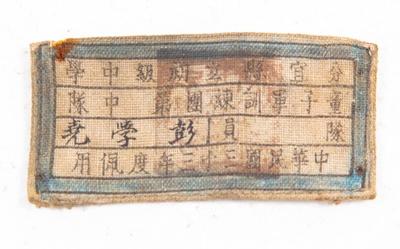 分宜縣立初級中學
童子軍訓練團第 中隊
隊員 彭學堯
中華民國三十三年度佩用